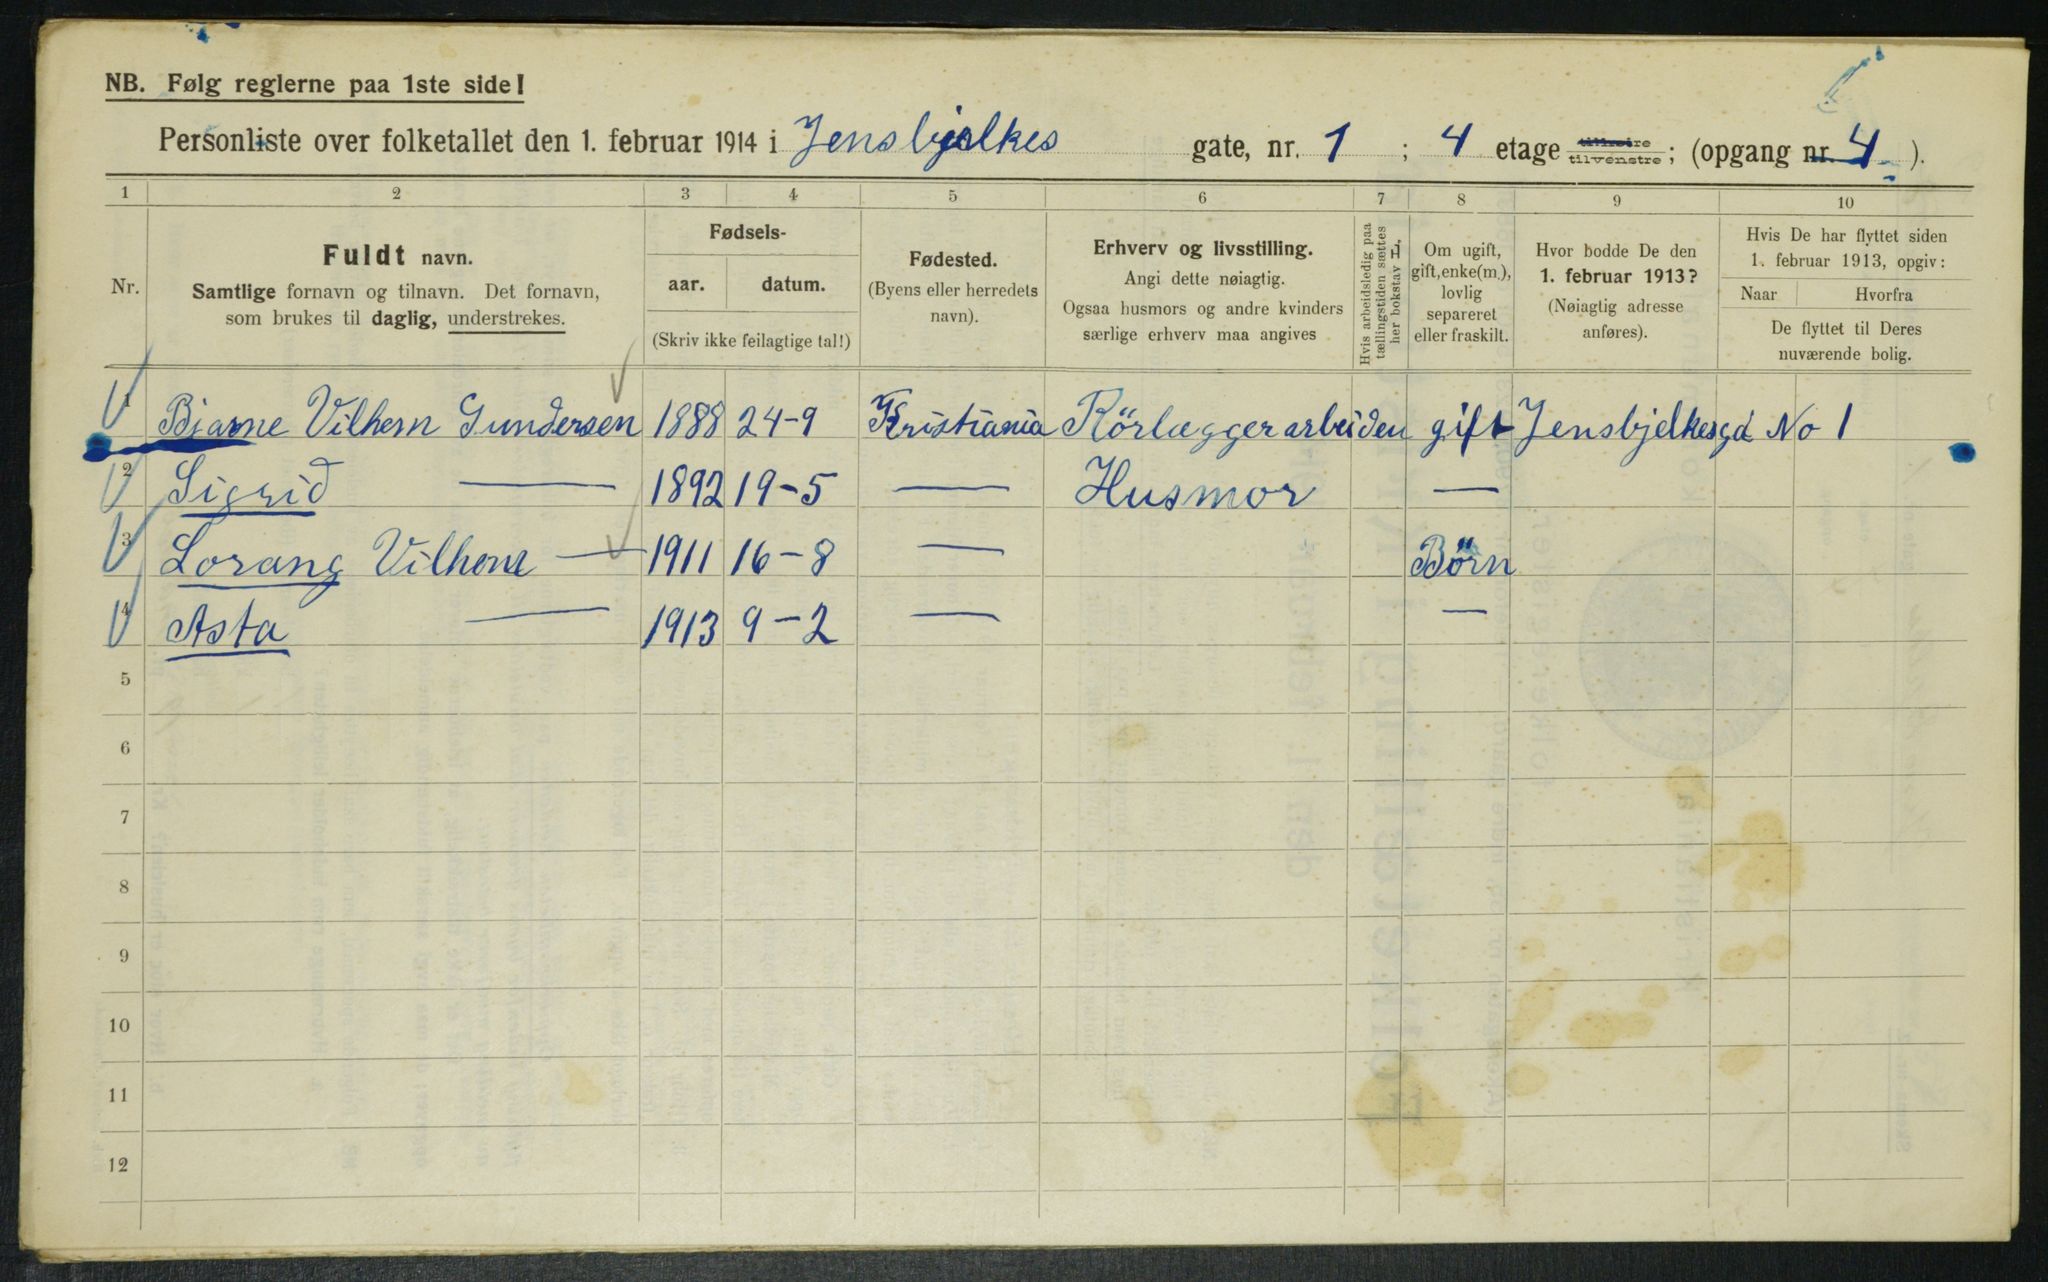 NB. Følg reglerne paa 1ste side!
Personliste over folketallet den 1. februar 1914 i Jensbjelkes gate, nr. 1 ; 4 etage tilhøire tilvenstre ; (opgang nr. 4 ).
1 2 3 4 5 6 7 8 9 10
Nr.
Fuldt navn.
Samtlige fornavn og tilnavn. Det fornavn,
som brukes til daglig, understrekes.
Fødsels-
aar. datum.
(Skriv ikke feilagtige tal!)
Fødested.
(Byens eller herredets
navn).
Erhverv og livsstilling.
Angi dette nøiagtig.
Ogsaa husmors og andre kvinders
særlige erhverv maa angives
Hvis arbeidsledig paa
tællingstiden sættes
her bokstav L.
Om ugift,
gift, enke(m.),
lovlig
separeret
eller fraskilt.
Hvor bodde De den
1. februar 1913?
(Nøiagtig adresse
anføres).
Hvis De har flyttet siden
1. februar 1913, opgiv:
Naar Hvorfra
De flyttet til Deres
nuværende bolig.
1 Bjarne Vilhem Gundersen 1888 24-9 Kristiania Rörlæggerarbeiden gift Jensbjelkesgd No 1
2 Sigrid — 1892 19-5 — Husmor —
3 Lorang Vilhem — 1911 16-8 — Børn
4 Asta — 1913 9-2 — —
5
6
7
8
9
10
11
12